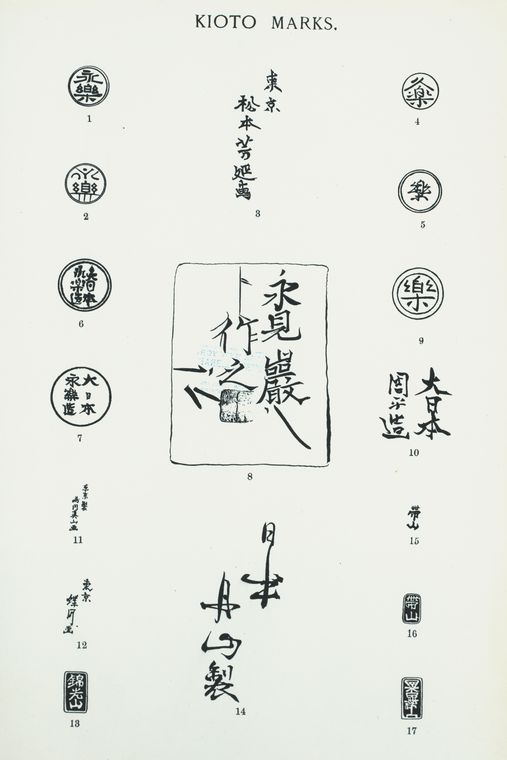 KIOTO MARKS.
永樂
1
永樂
2
東京
松本芳延画
3
樂
4
樂
5
大日本
永樂造
6
大日本
永樂造
7
永見巖
作之
8
樂
9
大日本
周平造
10
東京製
11
東京
12
錦光山
13
日本
丹山製
14
帯山
15
帯山
16
17